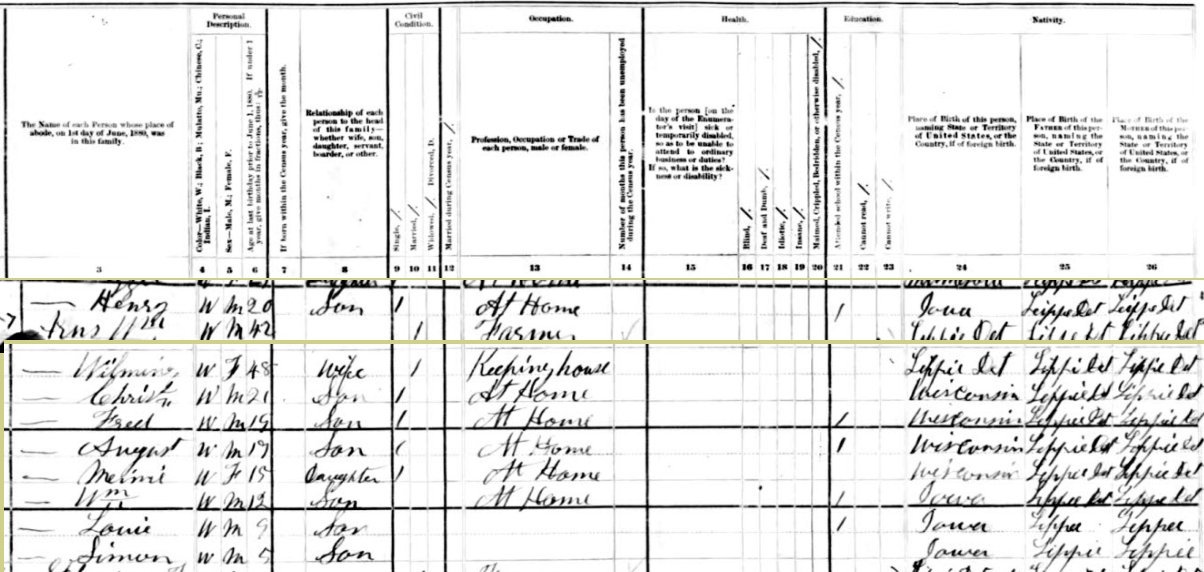 Personal Description.
Civil Condition.
Occupation.
Health.
Education.
Nativity.
The Name of each Person whose place of abode, on 1st day of June, 1880, was in this family.
Color—White, W.; Black, B.; Mulatto, Mu.; Chinese, C.; Indian, I.
Sex—Male, M.; Female, F.
Age at last birthday prior to June 1, 1880. If under 1 year, give months in fractions, thus:
If born within the Census year, give the month.
Relationship of each person to the head of this family—whether wife, son, daughter, servant, boarder, or other.
Single, /.
Married, /.
Widowed, /. Divorced, D.
Married during Census year, /.
Profession, Occupation or Trade of each person, male or female.
Number of months this person has been unemployed during the Census year.
Is the person [on the day of the Enumerator's visit] sick or temporarily disabled, so as to be unable to attend to ordinary business or duties? If so, what is the sickness or disability?
Blind, /.
Deaf and Dumb, /.
Idiotic, /.
Insane, /.
Maimed, Crippled, Bedridden, or otherwise disabled, /.
Attended school within the Census year, /.
Cannot read, /.
Cannot write, /.
Place of Birth of this person, naming State or Territory of United States, or the Country, if of foreign birth.
Place of Birth of the FATHER of this person, naming the State or Territory of United States, or the Country, if of foreign birth.
Place of Birth of the MOTHER of this person, naming the State or Territory of United States, or the Country, if of foreign birth.
3 4 5 6 7 8 9 10 11 12 13 14 15 16 17 18 19 20 21 22 23 24 25 26
— Henry W M 20 Son / At Home / Iowa Lippe Det Lippe Det
Wm W M 42 / Farmer Lippie Det Lippe Det Lippe Det
— W F 48 Wife / Keeping house Lippie Det Lippie Det Lippie Det
— W M 21 Son / At Home Wisconsin Lippie Det Lippie Det
— Fred W M 19 Son / At Home / Wisconsin Lippie Det Lippie Det
— August W M 17 Son / At Home / Wisconsin Lippie Det Lippie Det
— W F 15 Daughter / At Home Wisconsin Lippie Det Lippie Det
— Wm W M 12 Son At Home / Iowa Lippie Det Lippie Det
— Louie W M 9 Son / Iowa Lippe Lippe
— Simon W M 5 Son Iowa Lippie Lippie